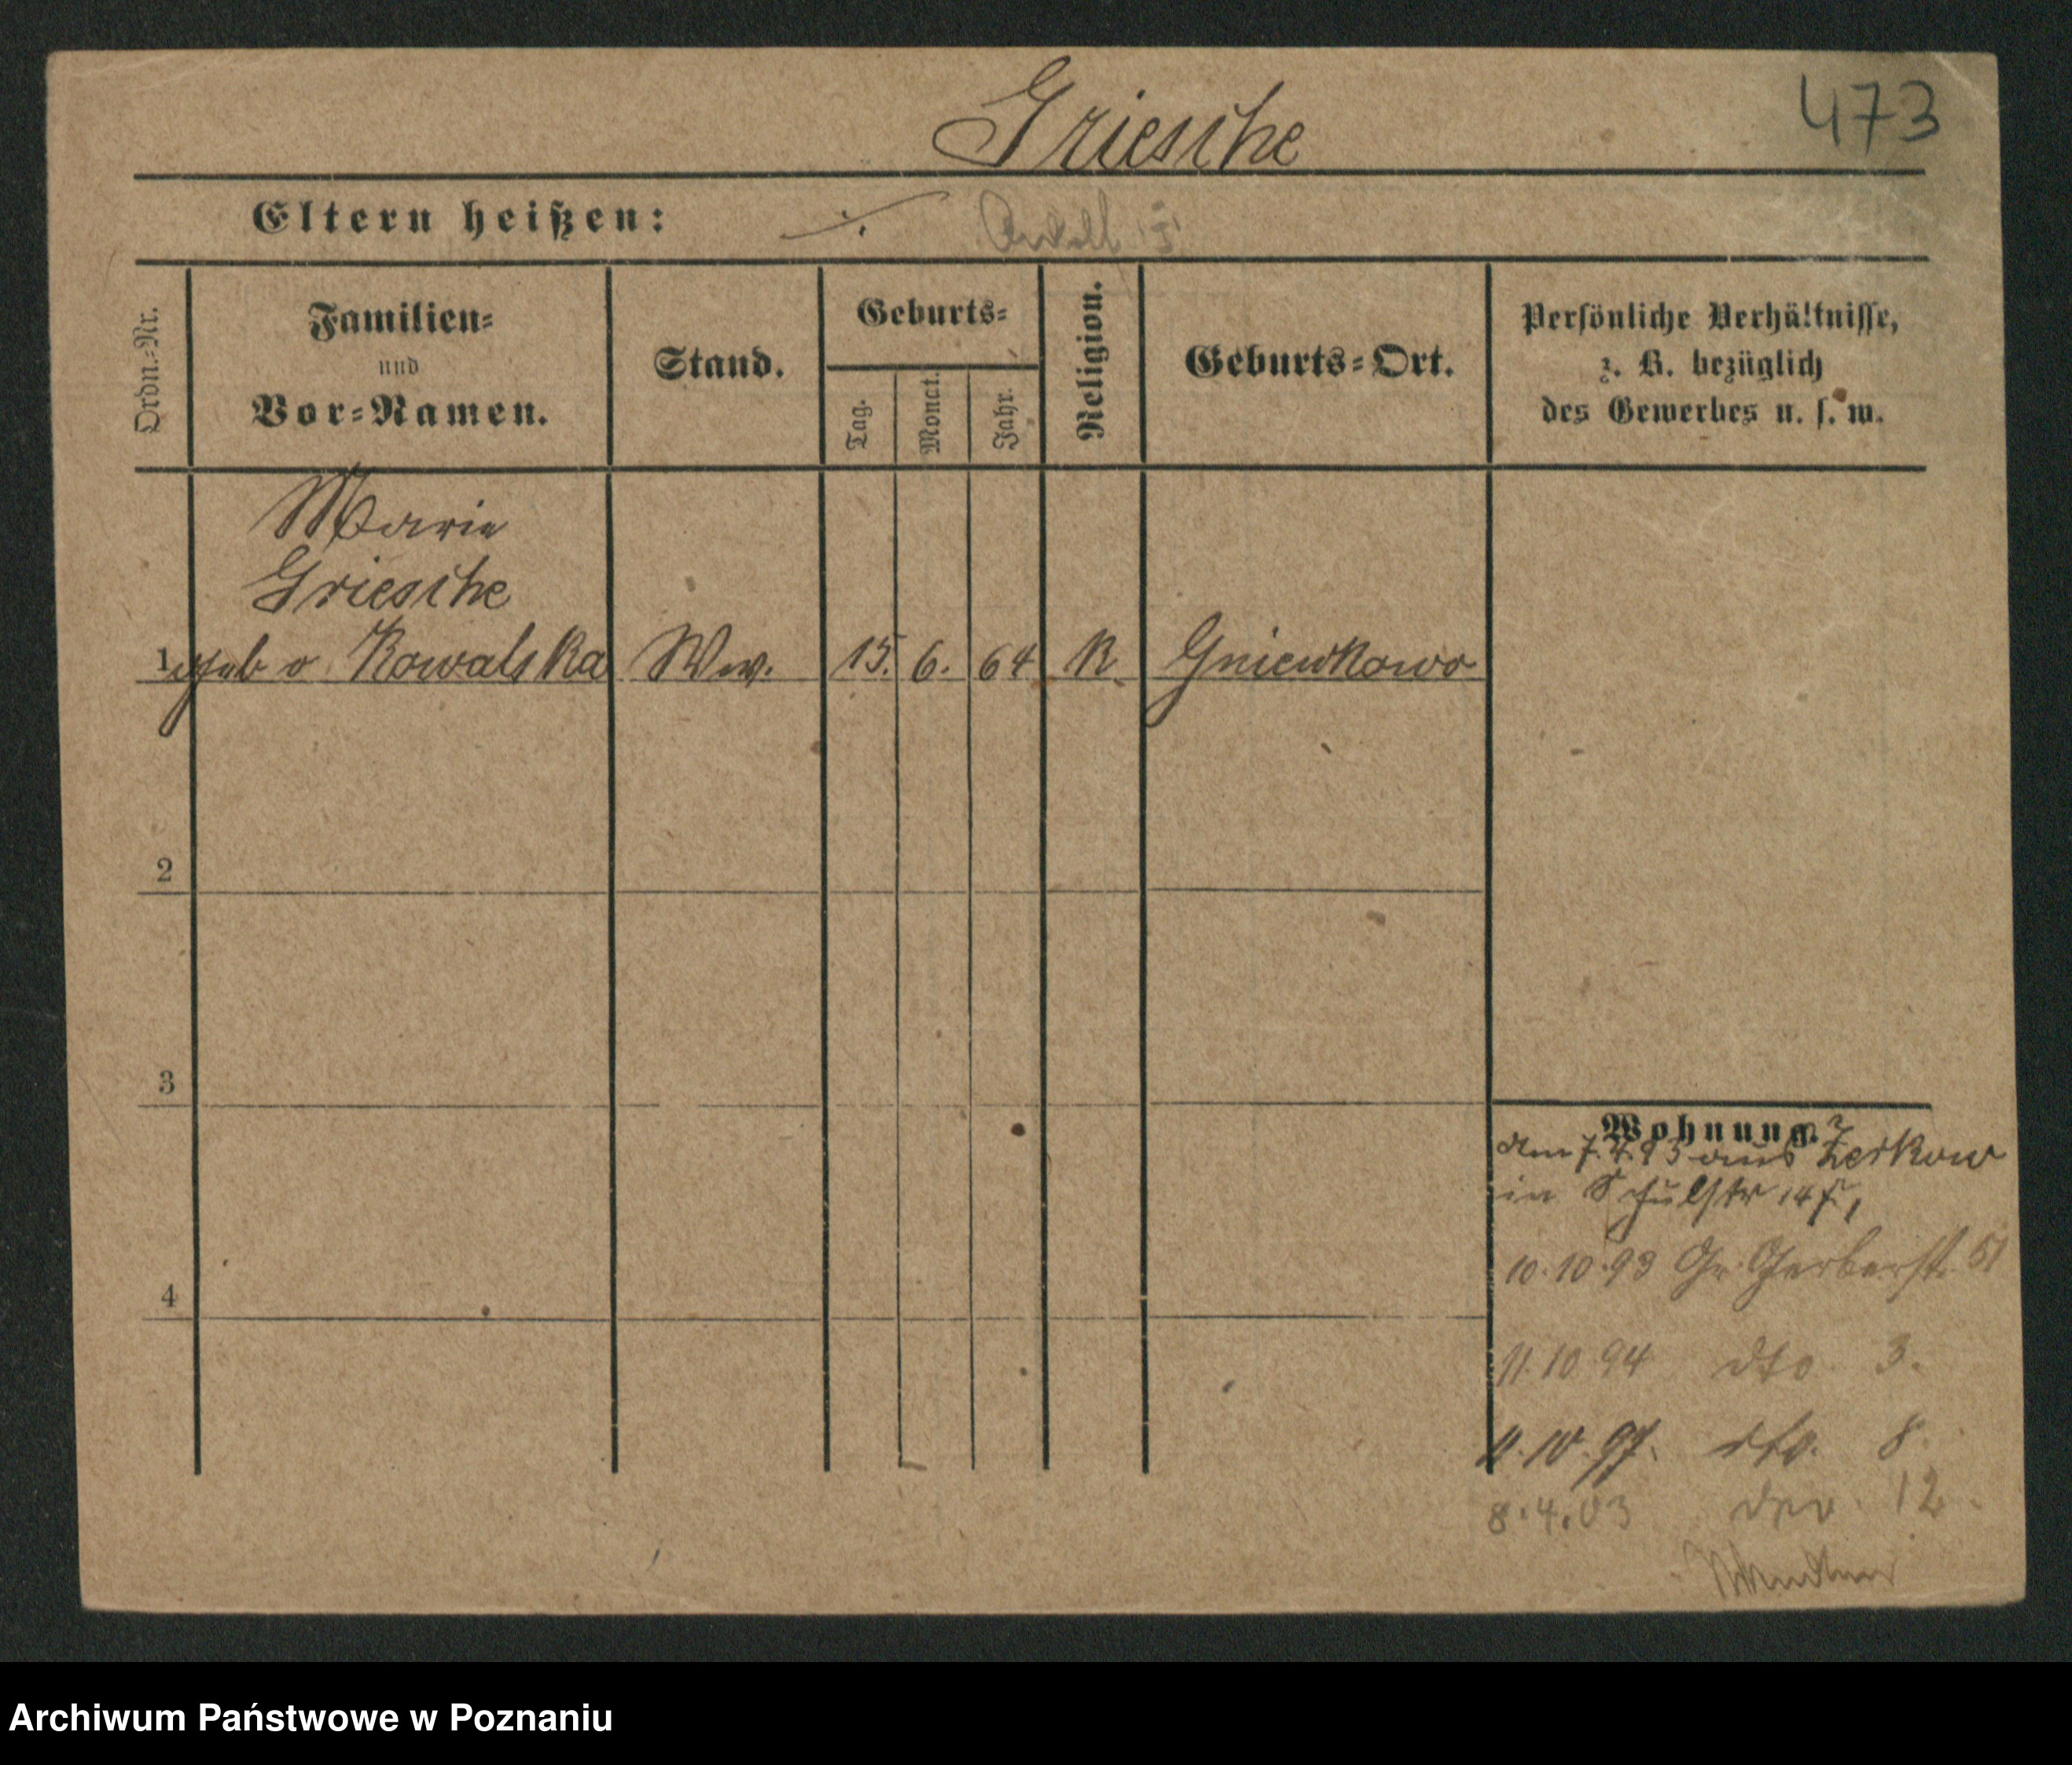 Griesche
473
Eltern heißen: ./.
Ordn.=Nr.
Familien=
und
Vor=Namen.
Stand.
Geburts=
Tag.
Monat.
Jahr.
Religion.
Geburts=Ort.
Persönliche Verhältnisse,
z. B. bezüglich
des Gewerbes u. s. w.
Marie
Griesche
1 geb v Kowalska Ww. 15. 6. 64 K. Gniewkowo
2
3
4
Wohnung.
Am 7.4.93 aus Zerkow
in Schulstr 14
10.10.93 Gr. Gerberst. 51
11.10.94 dto. 3.
11.10.97. dto. 8.
8.4.03 12.
Archiwum Państwowe w Poznaniu